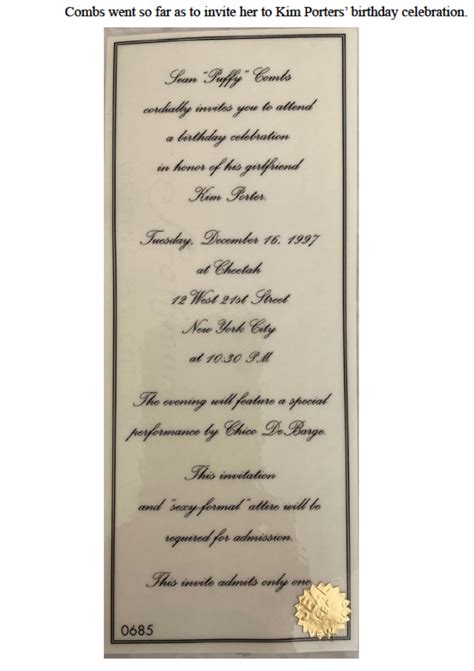 Combs went so far as to invite her to Kim Porters’ birthday celebration.
Sean "Puffy" Combs
cordially invites you to attend
a birthday celebration
in honor of his girlfriend
Kim Porter.
Tuesday, December 16, 1997
at Cheetah
12 West 21st Street
New York City
at 10:30 PM
The evening will feature a special
performance by Chico DeBarge.
This invitation
and "sexy-formal" attire will be
required for admission.
This invite admits only one
0685